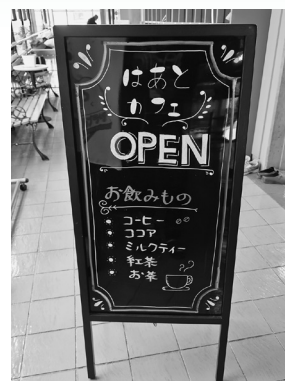 はあと
カフェ
OPEN
お飲みもの
コーヒー
ココア
ミルクティー
紅茶
お茶